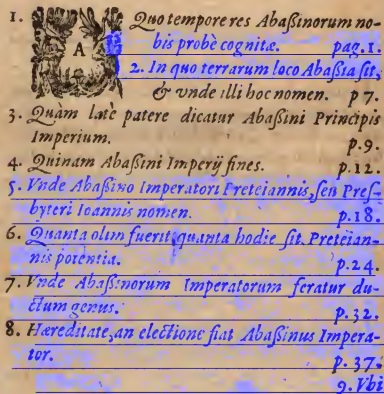 1. A Quo tempore res Abaßinorum no-
bis probè cognitæ. pag. 1.
2. In quo terrarum loco Abaßia sit,
& vnde illi hoc nomen. p 7.
3. Quàm latè patere dicatur Abaßini Principis
Imperium. p. 9.
4. Quinam Abaßini Imperij fines. p. 12.
5. Vnde Abaßino Imperatori Preteiannis, seu Pres-
byteri Ioannis nomen. p. 18.
6. Quanta olim fuerit, quanta hodie sit Preteian-
nis potentia. p. 24.
7. Vnde Abaßinorum Imperatorum feratur du-
ctum genus. p. 32.
8. Hæreditate, an electione fiat Abaßinus Impera-
tor. p. 37.
9. Vbi